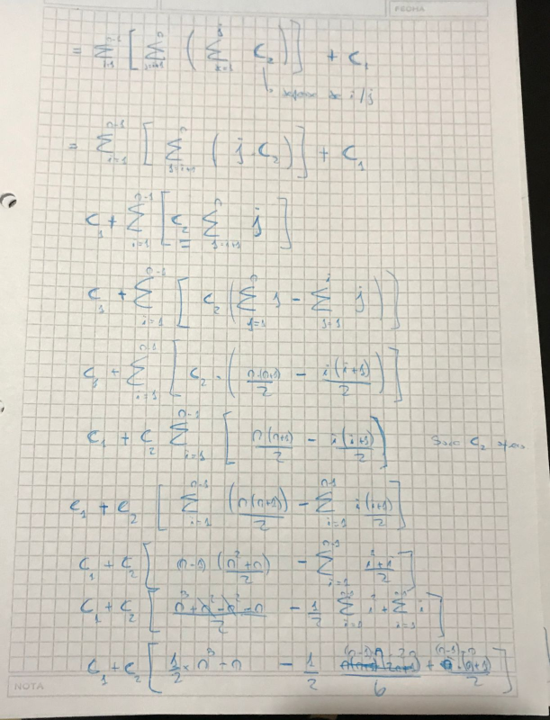 FECHA
= Σ_{i=1}^{n-1} [ Σ_{j=i+1}^{n} ( Σ_{k=1}^{j} C₂ ) ] + C₁
i/j
= Σ_{i=1}^{n-1} [ Σ_{j=i+1}^{n} ( j · C₂ ) ] + C₁
C₁ + Σ_{i=1}^{n-1} [ C₂ Σ_{j=i+1}^{n} j ]
C₁ + Σ_{i=1}^{n-1} [ C₂ ( Σ_{j=1}^{n} j - Σ_{j=1}^{i} j ) ]
C₁ + Σ_{i=1}^{n-1} [ C₂ · ( n(n+1)/2 - i(i+1)/2 ) ]
C₁ + C₂ Σ_{i=1}^{n-1} [ n(n+1)/2 - i(i+1)/2 ] C₂
C₁ + C₂ [ Σ_{i=1}^{n-1} (n(n+1))/2 - Σ_{i=1}^{n-1} i(i+1)/2 ]
C₁ + C₂ [ n-1 (n²+n)/2 - Σ_{i=1}^{n-1} i²+i/2 ]
C₁ + C₂ [ n³+n²-n²-n/2 - 1/2 Σ_{i=1}^{n-1} i² + Σ_{i=1}^{n-1} i ]
C₁ + C₂ [ 1/2 · n³-n - 1/2 (n-1)n 2n /6 + (n-1)·n /2 ]
NOTA